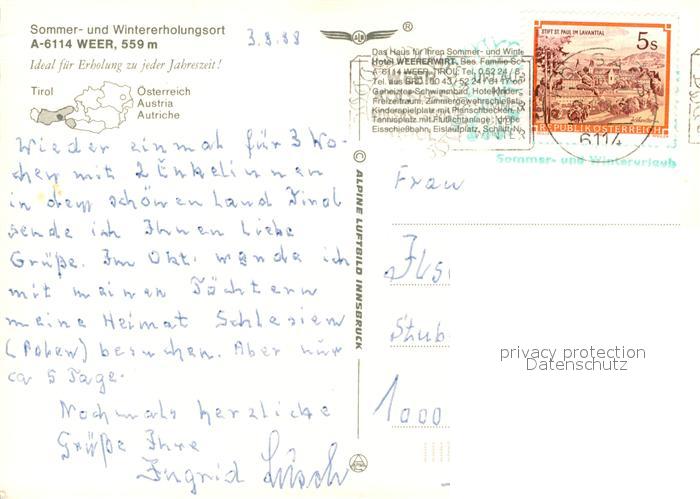 Sommer- und Wintererholungsort
A-6114 WEER, 559 m
Ideal für Erholung zu jeder Jahreszeit!
Tirol
Österreich
Austria
Autriche
3.8.88
Wieder einmal für 3 Wo-
chen mit 2 Enkelinnen
in dem schönen Land Tirol
sende ich Ihnen liebe
Grüße. Im Okt. werde ich
mit meinen Töchtern
meine Heimat Schlesien
(Polen) besuchen. Aber nur
ca 5 Tage.
Nochmals herzliche
Grüße Ihre
Ingrid
© ALPINE LUFTBILD INNSBRUCK
®
Das Haus für Ihren Sommer- und Winte
Hotel WEERERWIRT, Bes. Familie Sc
A-6114 WEER, TIROL, Tel. 0 52 24 / 8
Geheiztes Schwimmbad, Hotelkinder
Freizeitraum, Zimmergewehrschießsta
Kinderspielplatz mit Planschbecken, T
Tennisplatz mit Flutlichtanlage, große
Eisschießbahn, Eislaufplatz, Schilift-N
STIFT ST. PAUL IM LAVANTTAL
5s
REPUBLIK ÖSTERREICH
6114
Sommer- und Winterurlaub
Frau
Ils
Stub
1000
privacy protection
Datenschutz